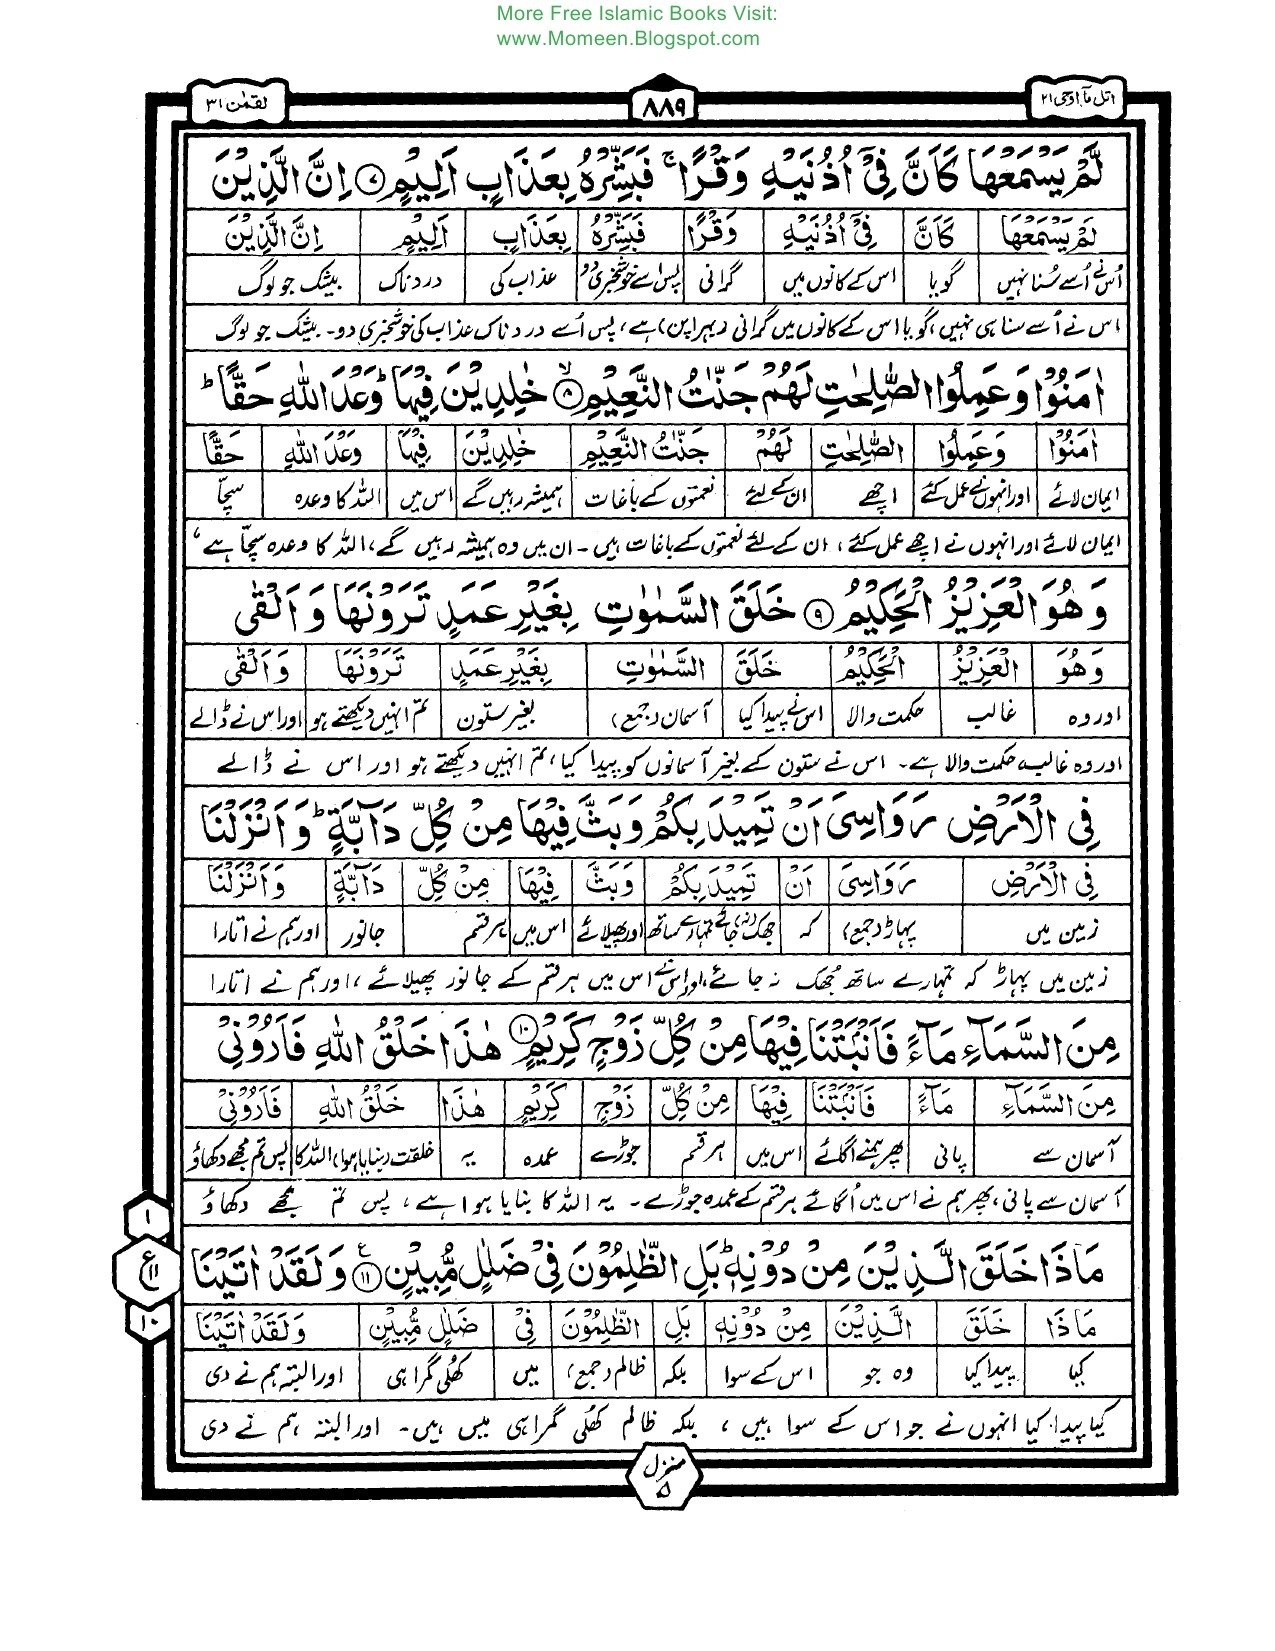 More Free Islamic Books Visit:
www.Momeen.Blogspot.com
اتل مآ اوحی ۲۱
۸۸۹
لقمٰن ۳۱
لَّمْ يَسْمَعْهَا كَاَنَّ فِىْٓ اُذُنَيْهِ وَقْرًا ۚ فَبَشِّرْهُ بِعَذَابٍ اَلِيْمٍ ۷ اِنَّ الَّذِيْنَ
لَمْ يَسْمَعْهَا كَاَنَّ فِىْٓ اُذُنَيْهِ وَقْرًا فَبَشِّرْهُ بِعَذَابٍ اَلِيْمٍ اِنَّ الَّذِيْنَ
اُس نے اُسے سُنا نہیں گویا اس کے کانوں میں گرانی پس اسے خوشخبری دو عذاب کی دردناک بیشک جو لوگ
اس نے اُسے سنا ہی نہیں، گویا اس کے کانوں میں گرانی (بہراپن) ہے، پس اُسے دردناک عذاب کی خوشخبری دو۔ بیشک جو لوگ
اٰمَنُوْا وَعَمِلُوا الصّٰلِحٰتِ لَهُمْ جَنّٰتُ النَّعِيْمِ ۸ ۙ خٰلِدِيْنَ فِيْهَا ؕ وَعْدَ اللّٰهِ حَقًّا ؕ
اٰمَنُوْا وَعَمِلُوا الصّٰلِحٰتِ لَهُمْ جَنّٰتُ النَّعِيْمِ خٰلِدِيْنَ فِيْهَا وَعْدَ اللّٰهِ حَقًّا
ایمان لائے اور انہوں نے عمل کئے اچھے ان کے لئے نعمتوں کے باغات ہمیشہ رہیں گے اس میں اللہ کا وعدہ سچّا
ایمان لائے اور انہوں نے اچھے عمل کئے، ان کے لئے نعمتوں کے باغات ہیں۔ ان میں وہ ہمیشہ رہیں گے، اللہ کا وعدہ سچّا ہے،
وَهُوَ الْعَزِيْزُ الْحَكِيْمُ ۹ خَلَقَ السَّمٰوٰتِ بِغَيْرِ عَمَدٍ تَرَوْنَهَا وَاَلْقٰى
وَهُوَ الْعَزِيْزُ الْحَكِيْمُ خَلَقَ السَّمٰوٰتِ بِغَيْرِ عَمَدٍ تَرَوْنَهَا وَاَلْقٰى
اور وہ غالب حکمت والا اس نے پیدا کیا آسمان (جمع) بغیر ستون تم انہیں دیکھتے ہو اور اس نے ڈالے
اور وہ غالب حکمت والا ہے۔ اس نے ستون کے بغیر آسمانوں کو پیدا کیا، تم انہیں دیکھتے ہو اور اس نے ڈالے
فِى الْاَرْضِ رَوَاسِىَ اَنْ تَمِيْدَ بِكُمْ وَبَثَّ فِيْهَا مِنْ كُلِّ دَآبَّةٍ ؕ وَاَنْزَلْنَا
فِى الْاَرْضِ رَوَاسِىَ اَنْ تَمِيْدَ بِكُمْ وَبَثَّ فِيْهَا مِنْ كُلِّ دَآبَّةٍ وَاَنْزَلْنَا
زمین میں پہاڑ (جمع) کہ جھک (نہ) جائے تمہارے ساتھ اور پھیلائے اس میں ہر قسم جانور اور ہم نے اتارا
زمین میں پہاڑ کہ تمہارے ساتھ جُھک نہ جائے، اور اس نے اس میں ہر قسم کے جانور پھیلائے، اور ہم نے اتارا
مِنَ السَّمَآءِ مَآءً فَاَنْۢبَتْنَا فِيْهَا مِنْ كُلِّ زَوْجٍ كَرِيْمٍ ۱۰ هٰذَا خَلْقُ اللّٰهِ فَاَرُوْنِىْ
مِنَ السَّمَآءِ مَآءً فَاَنْۢبَتْنَا فِيْهَا مِنْ كُلِّ زَوْجٍ كَرِيْمٍ هٰذَا خَلْقُ اللّٰهِ فَاَرُوْنِىْ
آسمان سے پانی پھر ہم نے اگائے اس میں ہر قسم جوڑے عمدہ یہ خلقت (بنایا ہوا) اللہ کا پس تم مجھے دکھاؤ
آسمان سے پانی، پھر ہم نے اس میں اُگائے ہر قسم کے عمدہ جوڑے۔ یہ اللہ کا بنایا ہوا ہے، پس تم مجھے دکھاؤ
مَاذَا خَلَقَ الَّذِيْنَ مِنْ دُوْنِهٖ ؕ بَلِ الظّٰلِمُوْنَ فِىْ ضَلٰلٍ مُّبِيْنٍ ۱۱ ع وَلَقَدْ اٰتَيْنَا
مَاذَا خَلَقَ الَّذِيْنَ مِنْ دُوْنِهٖ بَلِ الظّٰلِمُوْنَ فِىْ ضَلٰلٍ مُّبِيْنٍ وَلَقَدْ اٰتَيْنَا
کیا پیدا کیا وہ جو اس کے سوا بلکہ ظالم (جمع) میں کھلی گمراہی اور البتہ ہم نے دی
کیا پیدا کیا انہوں نے جو اس کے سوا ہیں، بلکہ ظالم کھلی گمراہی میں ہیں۔ اور البتہ ہم نے دی
۱
ع ۱۱
۱۰
منزل ۵